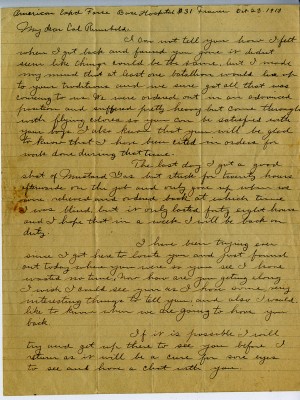 American Exped Force Base Hospital #31 France Oct 28 1918
My dear Col Rumbold:
I can not tell you how I felt
when I got back and found you gone it didnt
seem like things could be the same, but I made
my mind that at least one battalion would live up
to your traditions and we sure got all that was
coming to us. We were pushed out in an advanced
position and suffered pretty heavy but came through
with flying colors so you can be satisfied with
your boys I also know that you will be glad
to know that I have been cited in orders for
work done during that time.
The last day I got a good
shot of Mustard Gas but stuck for twenty hours
afterwards on the job and only gave up when we
were relieved and ordered back at which time
I was blind but it only lasted forty eight hours
and I hope that in a week I will be back on
duty.
I have been trying ever
since I got here to locate you and just found
out today where you were so you see I have
wasted no time. Now how are you getting along
I wish I could see you as I have some very
interesting things to tell you, and also I would
like to know when we are going to have you
back
If it is possible I will
try and get up there to see you before I
return as it will be a cure for sore eyes
to see and have a chat with you.